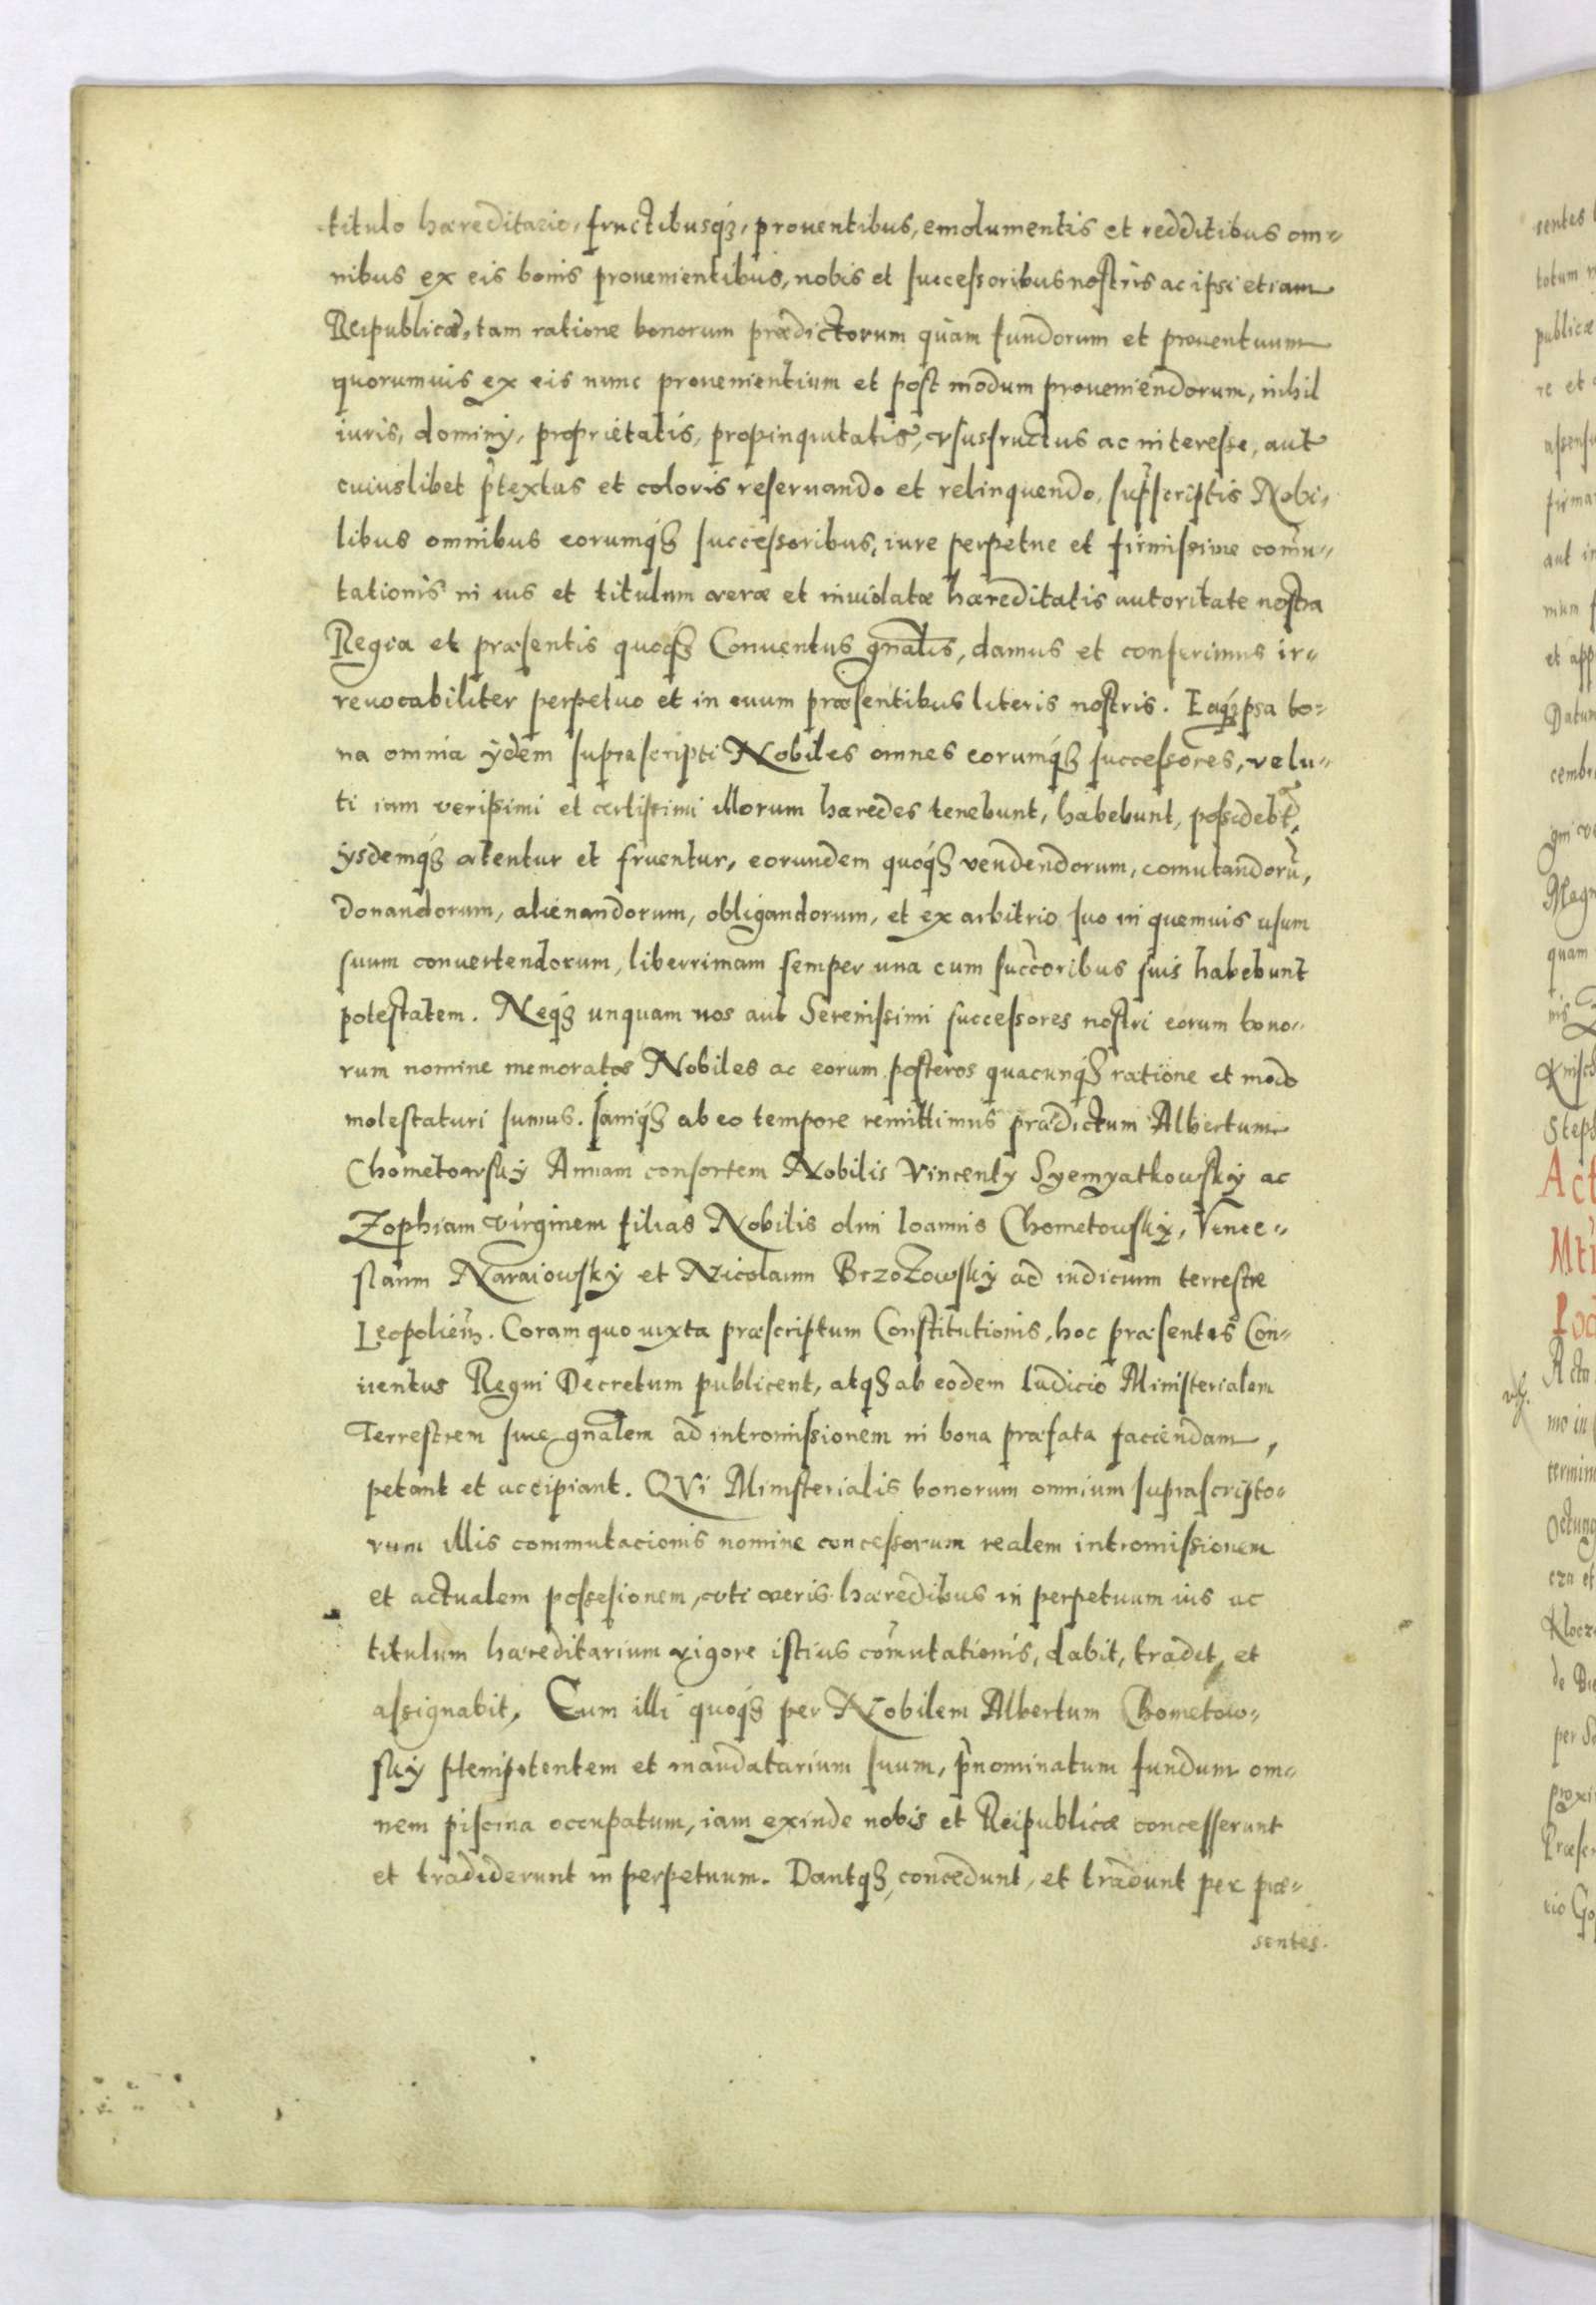 titulo hæreditario, fructibusqꝫ, prouentibus, emolumentis et redditibus om=
nibus ex eis bonis prouenientibus, nobis et successoribus nostris ac ipsi etiam
Reipublicæ, tam ratione bonorum prædictorum quàm fundorum et prouentuum
quorumuis ex eis nunc prouenientium et post modum proueniendorum, nihil
iuris, dominij, proprietatis, propinquitatis, vsusfructus ac interesse, aut
cuiuslibet p̃textus et coloris reseruando et relinquendo, sup̃scriptis Nobi=
libus omnibus eorumqꝫ successoribus, iure perpetuæ et firmissimæ com̃u=
tationis in ius et titulum veræ et inuiolatæ hæreditatis autoritate nostra
Regia et præsentis quoqꝫ Conuentus gñalis, damus et conferimus ir=
reuocabiliter perpetuo et in æuum præsentibus literis nostris. Eaqꝫ ipsa bo=
na omnia ijdem suprascripti Nobiles omnes eorumqꝫ successores, velu=
ti iam verissimi et certissimi illorum hæredes tenebunt, habebunt, possidebt̃,
ijsdemqꝫ vtentur et fruentur, eorundem quoqꝫ vendendorum, comutandorũ,
donandorum, alienandorum, obligandorum, et ex arbitrio suo in quemuis usum
suum conuertendorum, liberrimam semper una cum succ̃oribus suis habebunt
potestatem. Neqꝫ unquam nos aut Serenissimi successores nostri eorum bono=
rum nomine memoratos Nobiles ac eorum posteros quacunqꝫ ratione et modo
molestaturi sumus. Iamqꝫ ab eo tempore remittimus prædictum Albertum
Chometowskij Annam consortem Nobilis Vincentij Syemyatkowskij ac
Zophiam virginem filias Nobilis olim Ioannis Chometowskij, Vence=
slaum Naraiowskij et Nicolaum Brzozowskij ad iudicium terrestre
Leopolieñ. Coram quo iuxta præscriptum Constitutionis, hoc præsentis Con=
uentus Regni Decretum publicent, atqꝫ ab eodem Iudicio Ministerialem
Terrestrem siue gñalem ad intromissionem in bona præfata faciendam,
petant et accipiant. QVi Ministerialis bonorum omnium suprascripto=
rum illis commutacionis nomine concessorum realem intromissionem
et actualem possesionem, vti veris hæredibus in perpetuum ius ac
titulum hæreditarium vigore istius com̃utationis, dabit, tradet, et
assignabit, Cum illi quoqꝫ per Nobilem Albertum Chometow=
skij plenipotentem et mandatarium suum, p̃nominatum fundum om=
nem piscina occupatum, iam exinde nobis et Reipublicæ concesserunt
et tradiderunt in perpetuum. Dantqꝫ, concedunt, et tradunt per præ=
sentes.